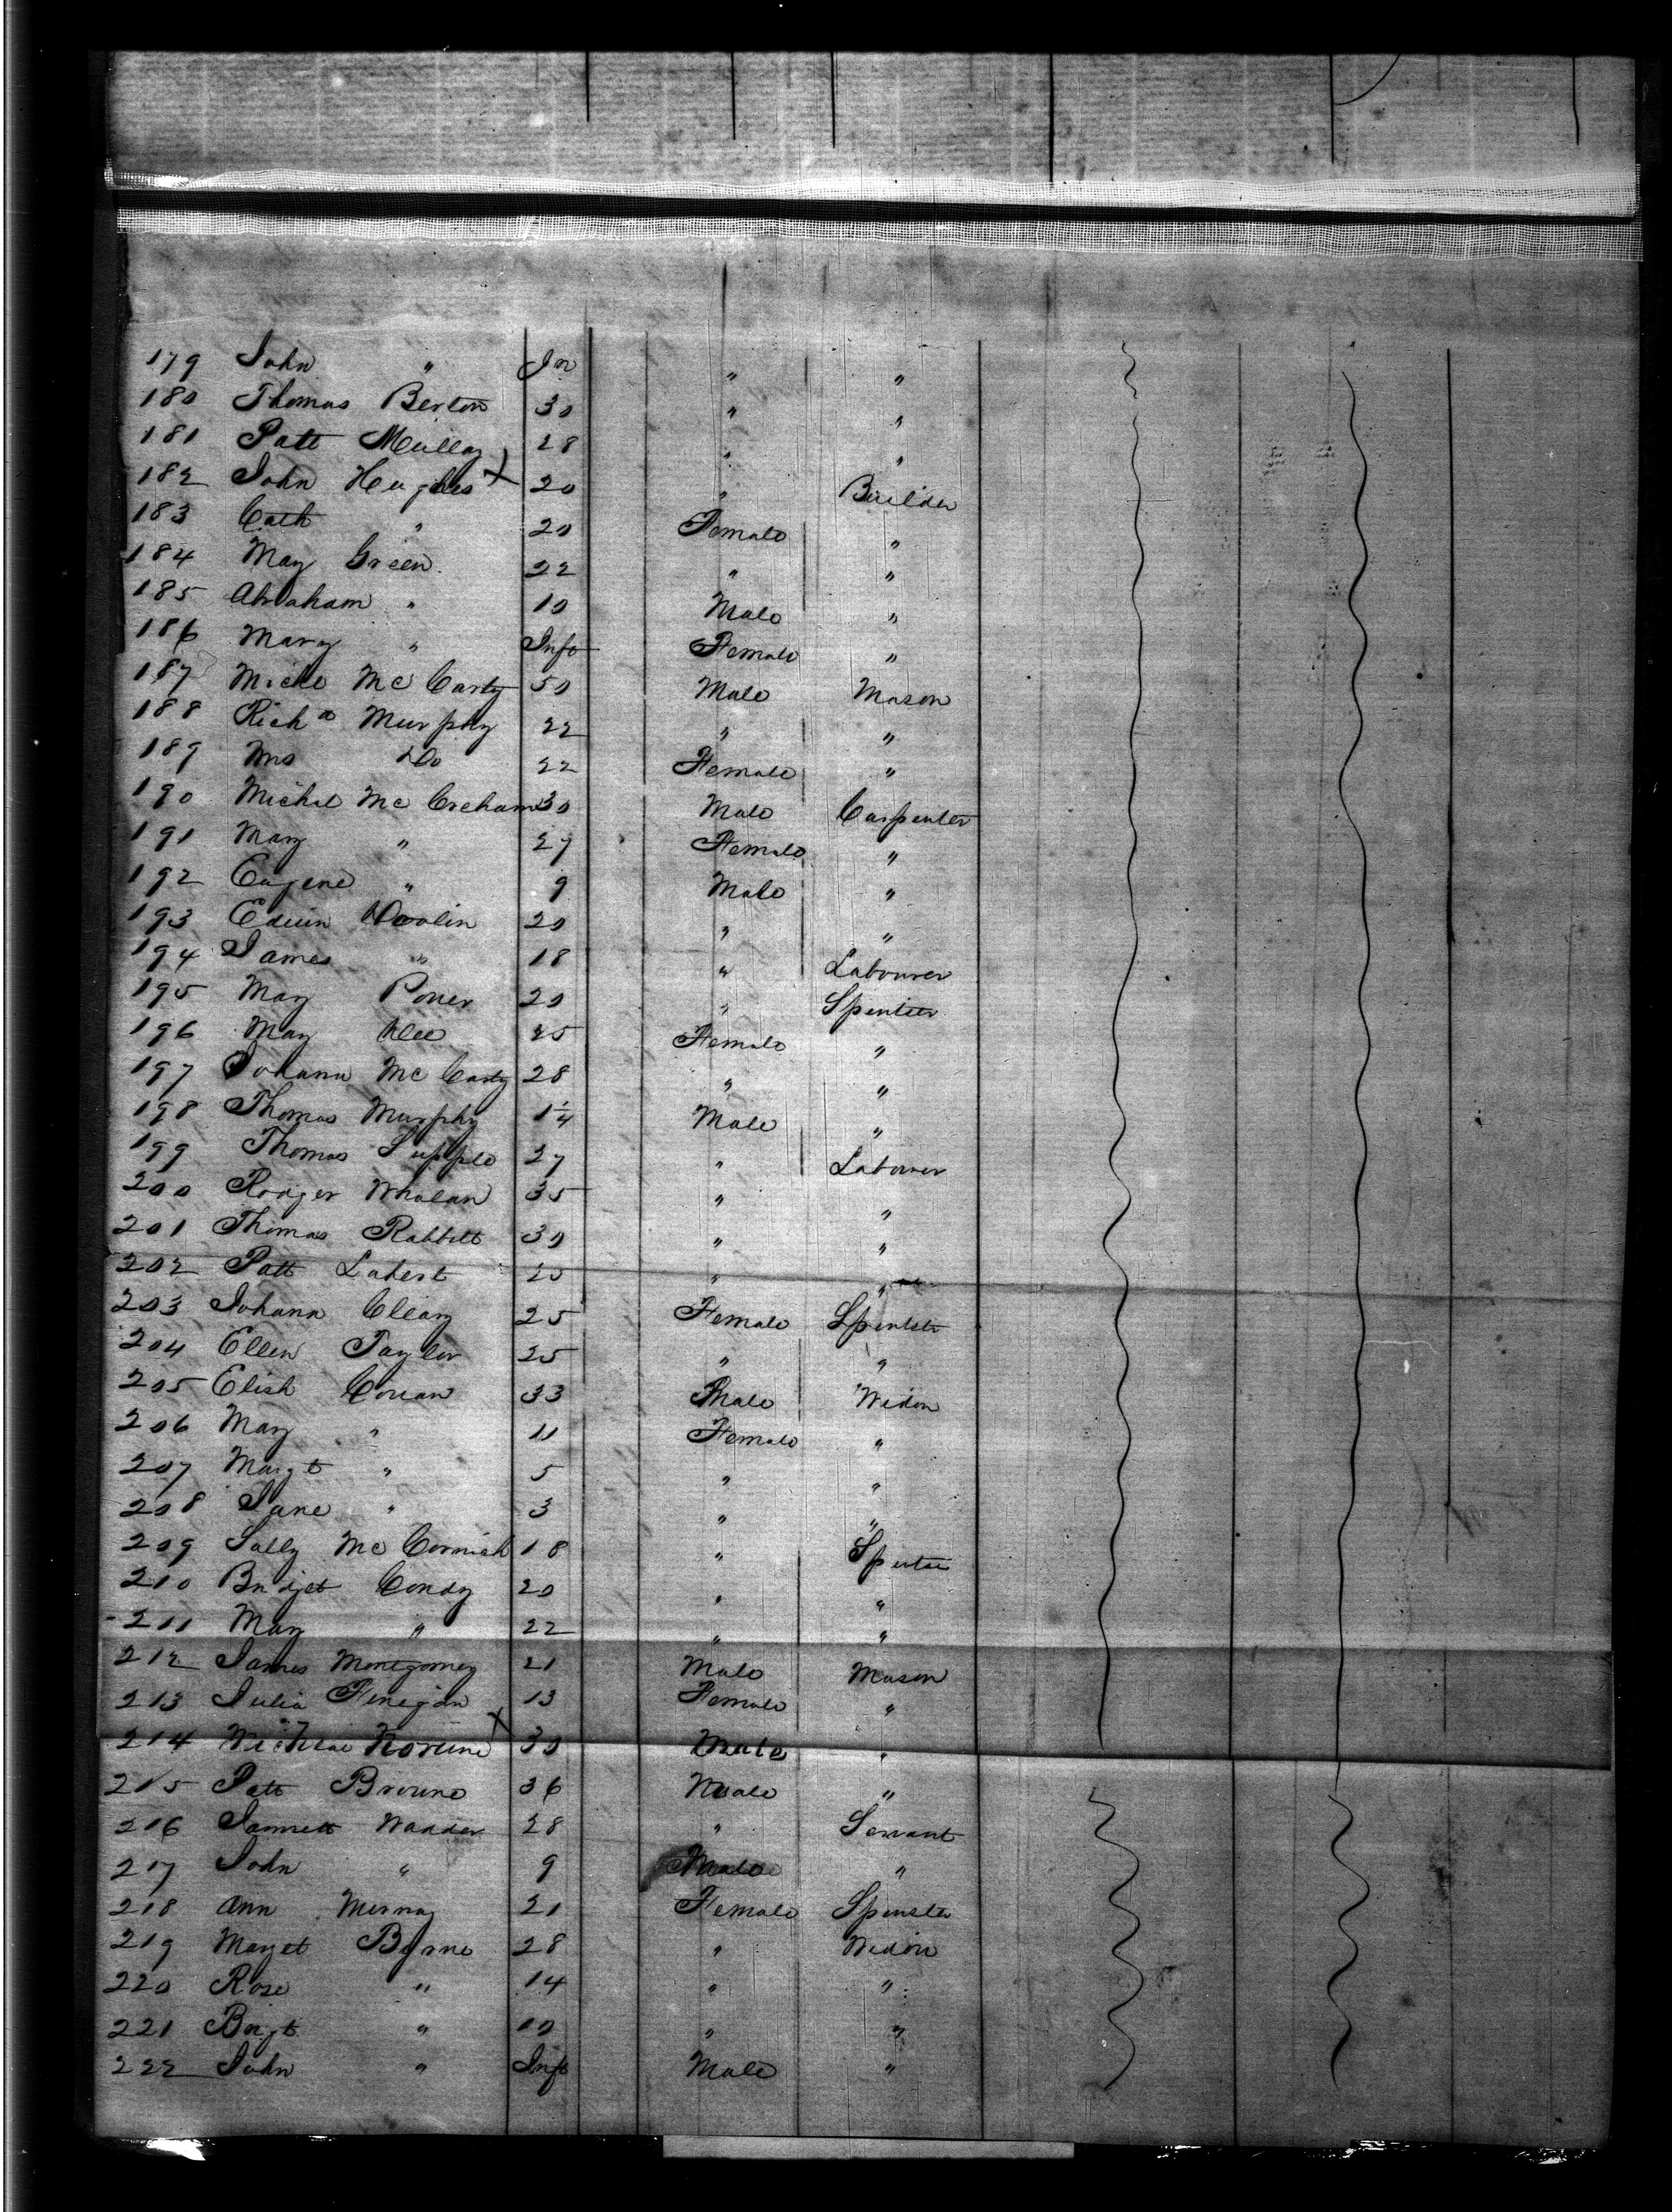 179 John " In " "
180 Thomas Berton 30 " "
181 Patt Mullay 28 " "
182 John Hughes X 20 " Builder
183 Cath " 20 Female "
184 May Green 22 " "
185 Abraham " 10 Male "
186 Mary " Inft Female "
187 Miche Mc Carty 50 Male Mason
188 Richd Murphy 22 " "
189 Mrs Do 22 Female "
190 Michel Mc Creham 30 Male Carpenter
191 Mary " 27 Female "
192 Eugene " 9 Male "
193 Edwin Doolin 20 " "
194 James " 18 " Labourer
195 May Power 20 " Spinster
196 May 25 Female "
197 Johanna Mc Carty 28 " "
198 Thomas Murphy 1¼ Male "
199 Thomas Supple 27 " Labourer
200 Rodger Whalan 35 " "
201 Thomas Rabbitt 30 " "
202 Patt Lahert 20 " "
203 Johana Cleary 25 Female Spinster
204 Ellen Taylor 25 " "
205 Elish Conan 33 Male Widow
206 May " 11 Female "
207 Margt " 5 " "
208 Jane " 3 " "
209 Sally Mc Cormick 18 " Spinster
210 Bridget Condy 20 " "
211 May " 22 " "
212 James Montgomey 21 Male Mason
213 Julia Finegan 13 Female "
214 X 30 Male "
215 Patt Browne 36 Male "
216 Wadder 28 " Servant
217 John " 9 Male "
218 Ann Murray 21 Female Spinster
219 Marget Byrne 28 " Widow
220 Rose " 14 " "
221 Brigt " 10 " "
222 John " Inft Male "